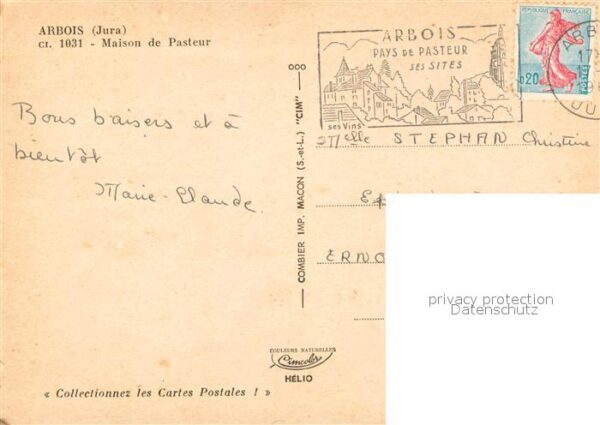 ARBOIS (Jura)
CI. 1031 - Maison de Pasteur
Bons baisers et à
bientôt
Marie-Claude.
COULEURS NATURELLES
Cimcolor
HÉLIO
« Collectionnez les Cartes Postales ! »
COMBIER IMP. MACON (S.-et-L.) "CIM"
ARBOIS
PAYS DE PASTEUR
SES SITES
SES VINS
REPUBLIQUE FRANÇAISE
0,20
POSTES
ARBO
17
Melle STEPHAN Christine
ERNO
privacy protection
Datenschutz